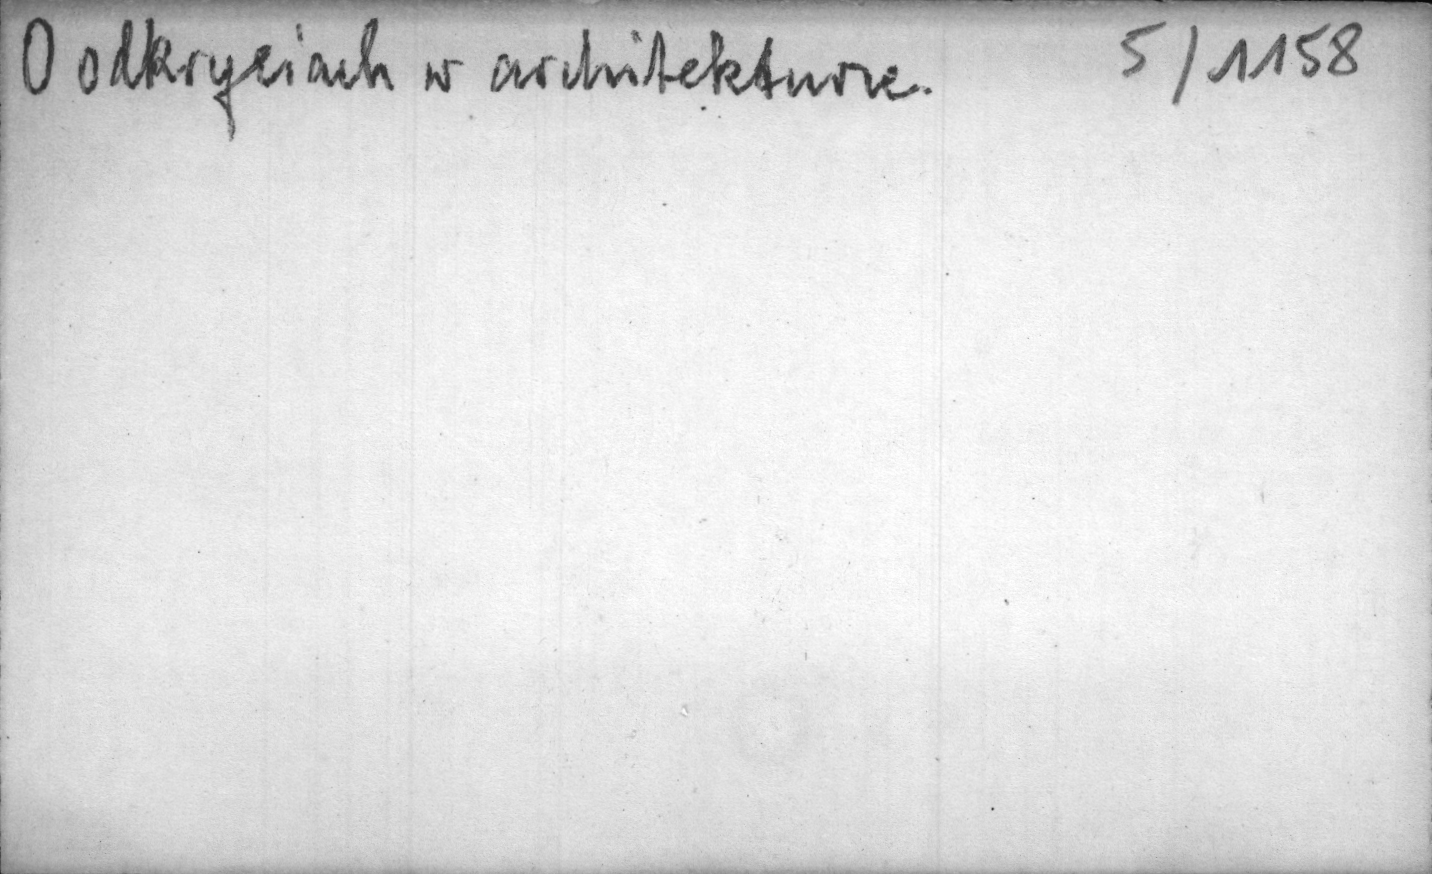 O odkryciach w architekturze. 5/1158